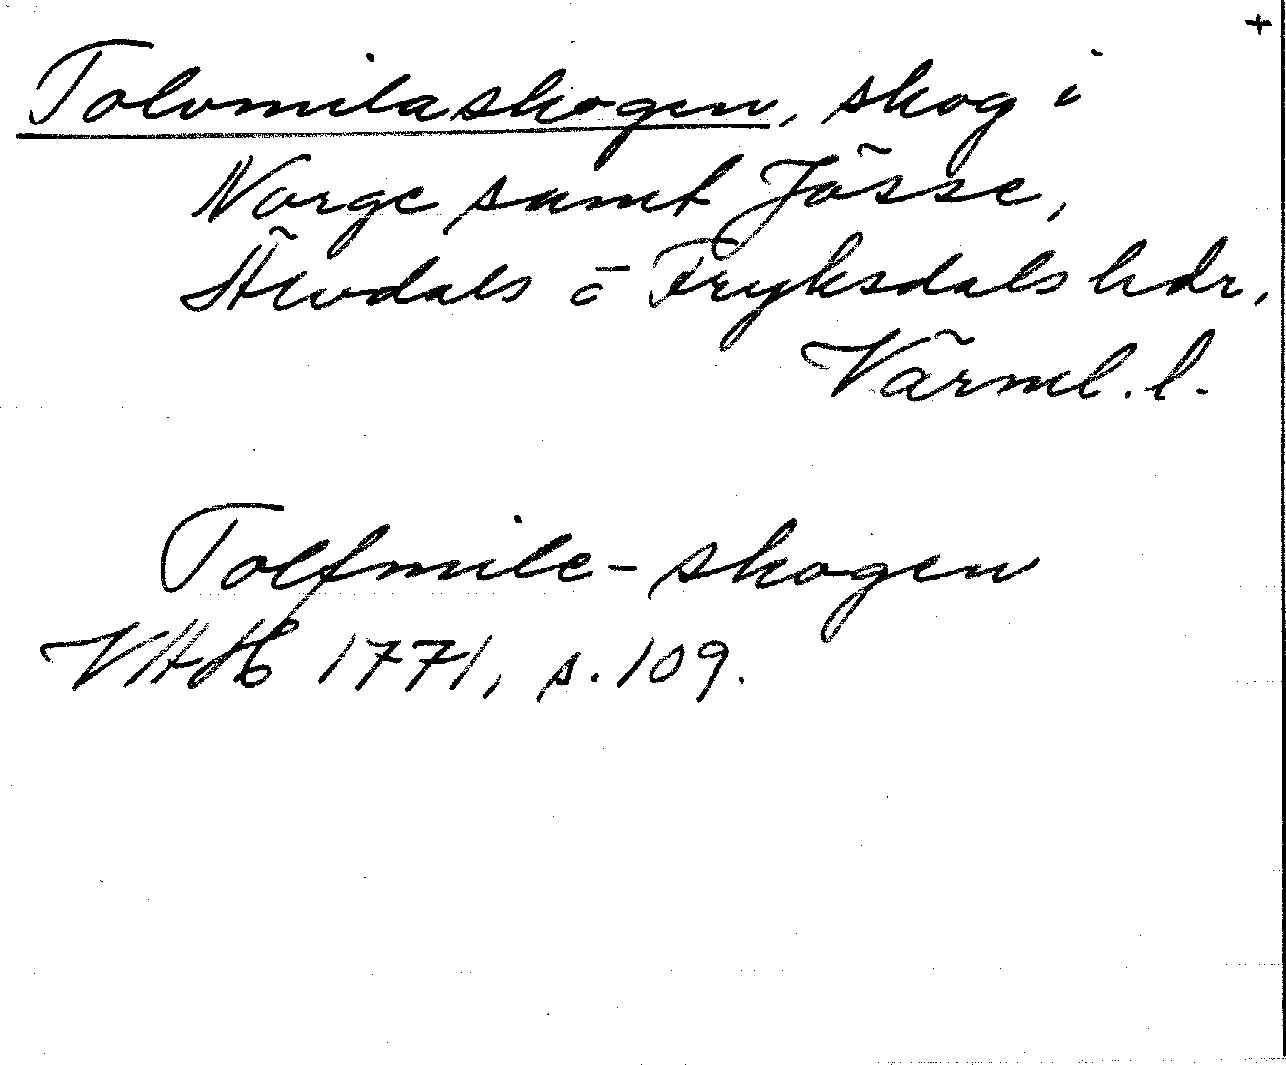 +
Tolvmilaskogen, skog i
Norge samt Jösse,
Älvdals o Fryksdals hdr,
Värml. l.
Tolfmile-skogen
VHAH 1771, s. 109.